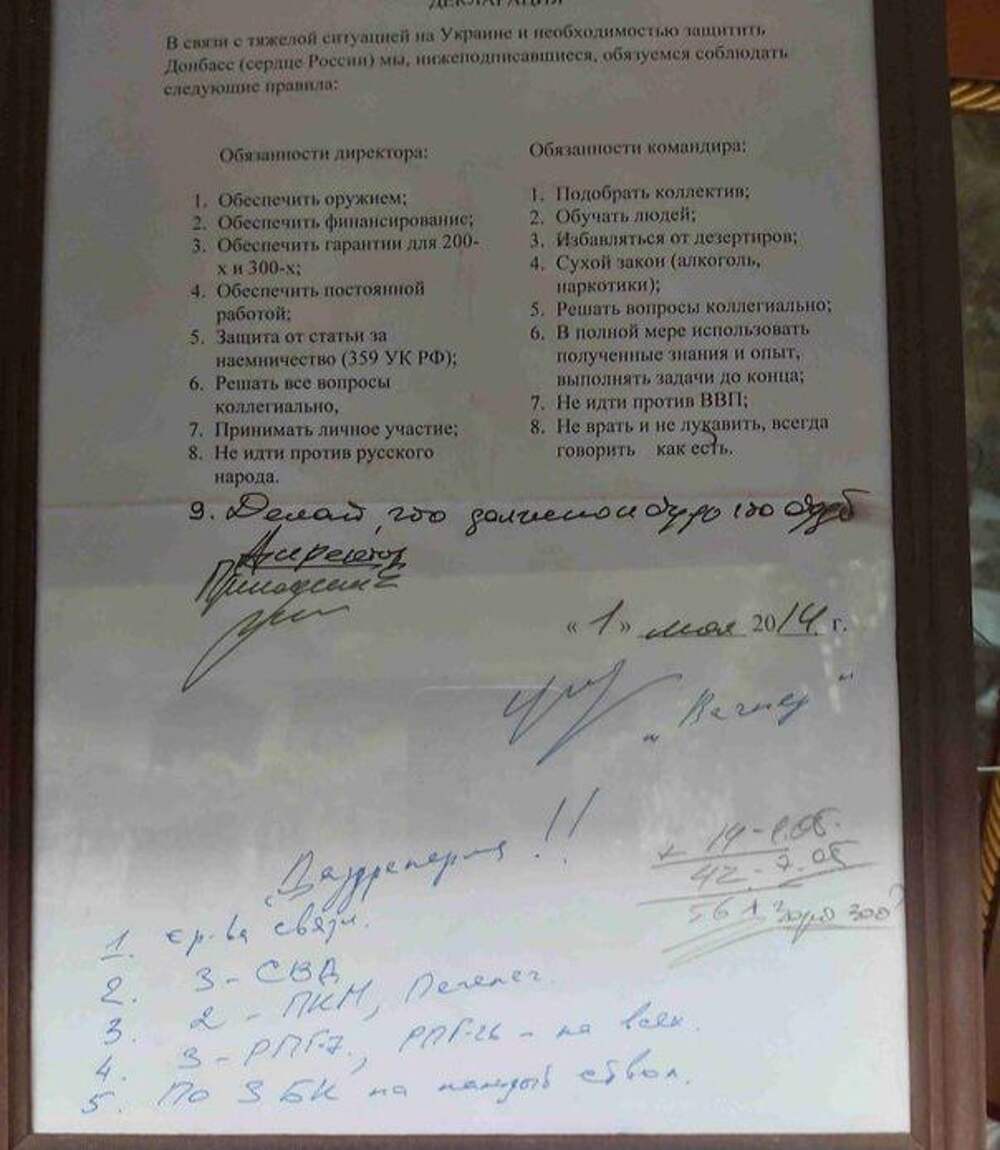 ДЕКЛАРАЦИЯ
В связи с тяжелой ситуацией на Украине и необходимостью защитить
Донбасс (сердце России) мы, нижеподписавшиеся, обязуемся соблюдать
следующие правила:
Обязанности директора:
1. Обеспечить оружием;
2. Обеспечить финансирование;
3. Обеспечить гарантии для 200-
х и 300-х;
4. Обеспечить постоянной
работой;
5. Защита от статьи за
наемничество (359 УК РФ);
6. Решать все вопросы
коллегиально,
7. Принимать личное участие;
8. Не идти против русского
народа.
Обязанности командира:
1. Подобрать коллектив;
2. Обучать людей;
3. Избавляться от дезертиров;
4. Сухой закон (алкоголь,
наркотики);
5. Решать вопросы коллегиально;
6. В полной мере использовать
полученные знания и опыт,
выполнять задачи до конца;
7. Не идти против ВВП;
8. Не врать и не лукавить, всегда
говорить как есть.
9. Делай, что должено и будо что будет
Директор
Пригожин Е
« 1 » мая 2014 г.
„Вагнер"
!!
1. ср-ва связи.
2. 3 - СВД
3. 2 - ПКМ, Печенег.
4. 3 - РПГ-7, РПГ-26 - на всех.
5. По 3 БК на каждый ствол.
14 - 1.05.
42 - 7.05
56 300?